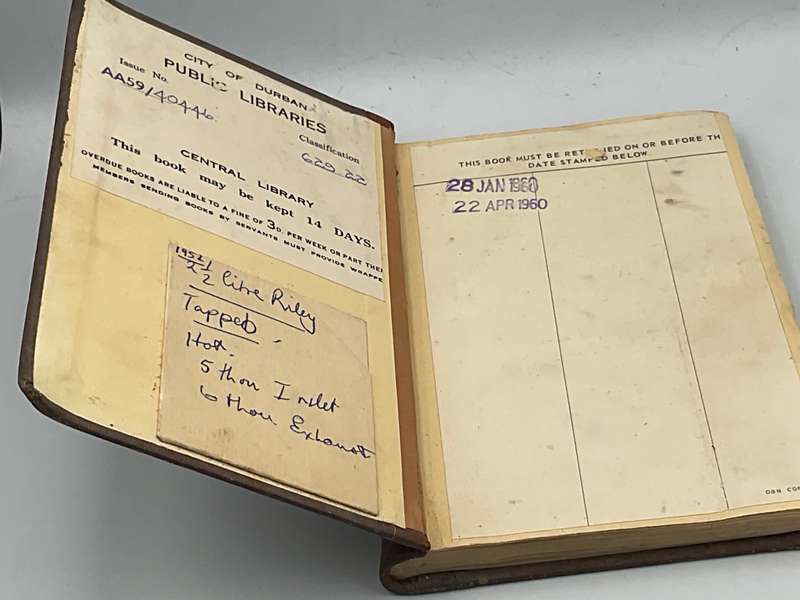 CITY OF DURBAN
PUBLIC LIBRARIES
Issue No.
AA59/40446
Classification
629.22
CENTRAL LIBRARY
This book may be kept 14 DAYS.
OVERDUE BOOKS ARE LIABLE TO A FINE OF 3D. PER WEEK OR PART THE
MEMBERS SENDING BOOKS BY SERVANTS MUST PROVIDE WRAPPE
1952
2½ litre Riley
Tapped
Hot.
5 thou Inlet
6 thou Exhaust
THIS BOOK MUST BE RETURNED ON OR BEFORE TH
DATE STAMPED BELOW.
28 JAN 1960
22 APR 1960
DBN COR